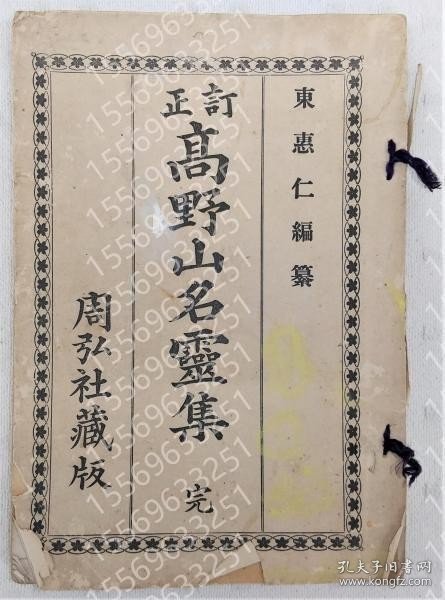 東惠仁編纂
訂正
高野山名靈集 完
周弘社藏版
15569633251
孔夫子旧书网
www.kongfz.com